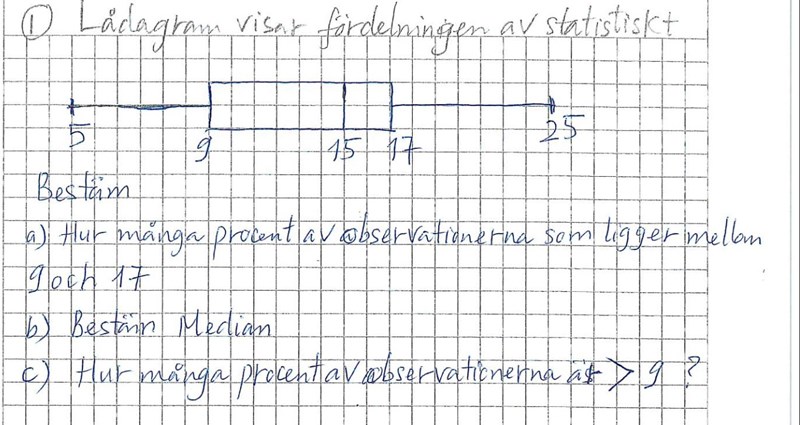 ① Lådagram visar fördelningen av statistiskt
5 9 15 17 25
Bestäm
a) Hur många procent av observationerna som ligger mellan
9 och 17
b) Bestäm Median
c) Hur många procent av observationerna är > 9 ?